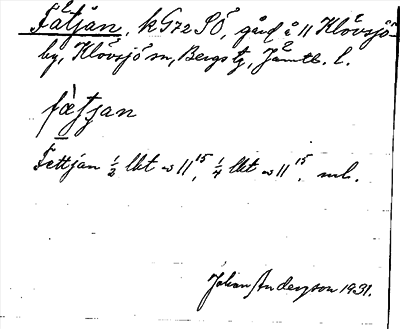 Fätjan, kG72SÖ, gård å 11 Klövsjö
by, Klövsjö sn, Bergs tg, Jämtl. l.
fætjan
Fettjan ½ lkt = 11¹⁵, ¼ lkt = 11¹⁵, ml.
Johan Anderzson 1931.